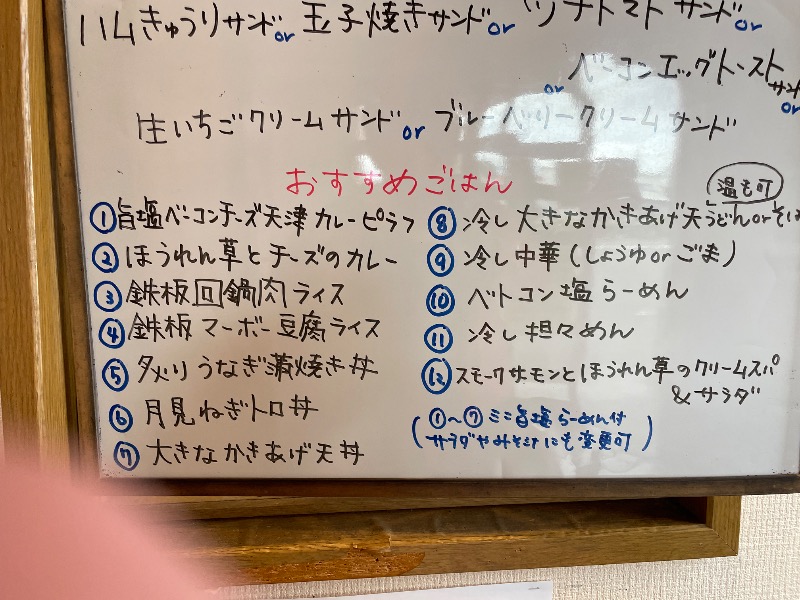 ハムきゅうりサンドor 玉子焼きサンドor ツナトマトサンドor
ベーコンエッグトーストサンドor
or
生いちごクリームサンドor ブルーベリークリームサンド
おすすめごはん
温も可
①旨塩ベーコンチーズ天津カレーピラフ
②ほうれん草とチーズのカレー
③鉄板回鍋肉ライス
④鉄板マーボー豆腐ライス
⑤タレ入りうなぎ蒲焼き丼
⑥月見ねぎトロ丼
⑦大きなかきあげ天丼
⑧冷し大きなかきあげ天うどんorそば
⑨冷し中華(しょうゆorごま)
⑩ベトコン塩らーめん
⑪冷し担々めん
⑫スモークサーモンとほうれん草のクリームスパ
&サラダ
(①〜⑦ミニ旨塩らーめん付
サラダやみそ汁にも変更可)